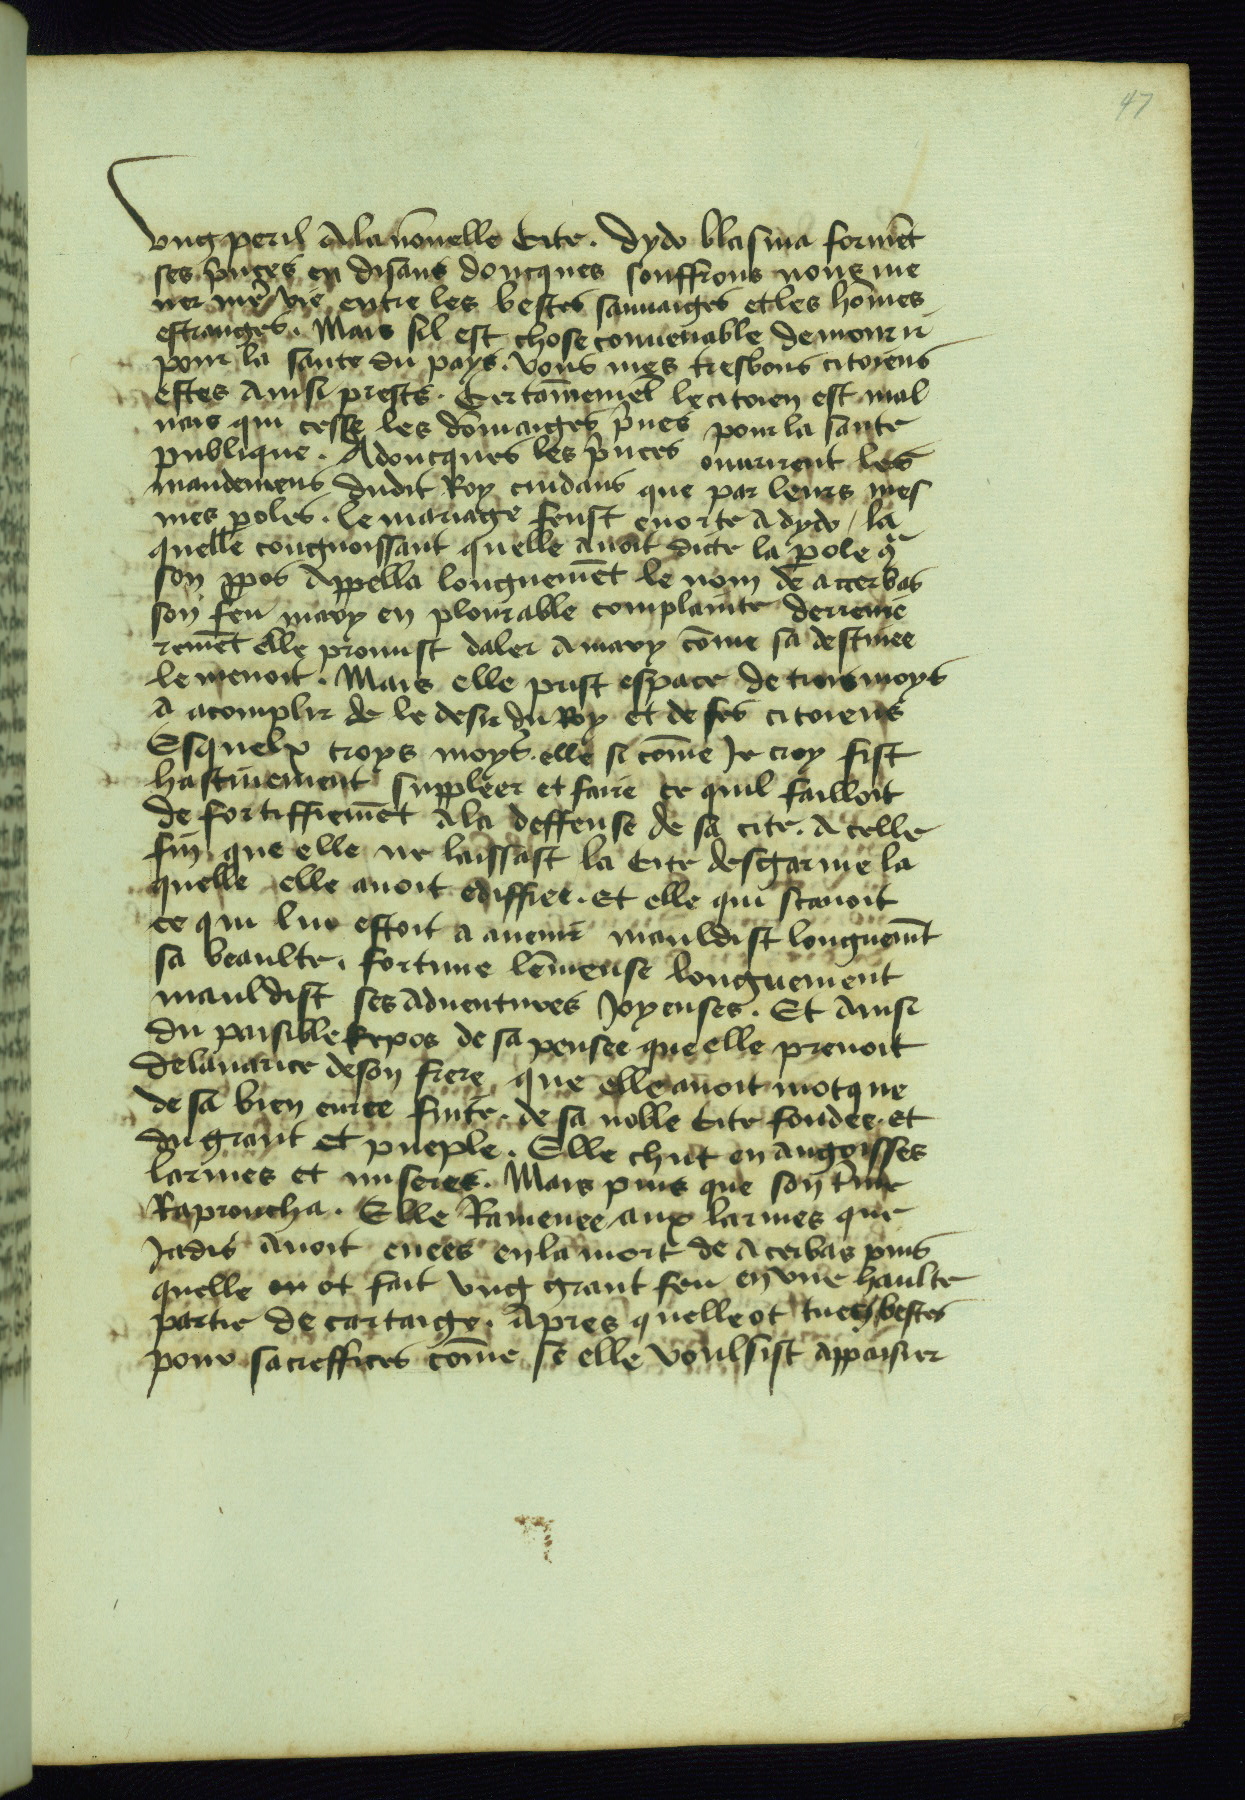 47
vng peril A la nōuelle Cite. Dydo blasma formēt
ses p̄nces en disans doncques souffrons nous me
ner mē vie entre les bestes sauuaiges et les hōmes
estranges. Mais sil est chose conuenable de mourir
pour la sante du pays. vous mes tresbons citoiens
estes Ainsi prests. Certaīnemēt le citoien est mal
uais qui cesse les dōmaiges p̄ues pour la sante
publique. Adoncques les p̄nces ouurirent les
mandemens dudit Roy cuidans que par leurs mes
mes poles. le mariage feust enorte A dydo / la
quelle congnoissant quelle auoit dicte la pole q̄
son ppos Appella longuemēt le nom de accerbas
son feu mary en plourable complainte derreine
remēt elle promist daler A mary cōme sa destinee
le menoit. Mais elle prist espace de trois moys
A acomplir de le desir du Roy et de ses citoiens
Esquelx troys moys. elle si cōme Je croy fist
hastiuement suppleer et faire ce quil failloit
de fortiffiemēt A la deffense de sa cite. A celle
fin que elle ne laissast la Cite desgarnie la
quelle elle auoit ediffiee. Et elle qui scauoit
ce qui luy estoit a auenir mauldist longuemēt
sa beaulte. fortune lēmeuse longuement
mauldist ses Aduentures Joyeuses. Et Ainsi
du paisible Repos de sa pensee que elle prenoit
de lauarice de son frere que elle auoit motque
de sa bien euree fuite. de sa noble Cite fondee. et
du grant et pueple. Elle chut en angoisses
larmes et miseres. Mais puis que son t̄me
Raproucha. Elle Ramenee aux larmes que
Jadis Auoit euees en la mort de Acerbas puis
quelle en ot fait vng grant feu en vne haulte
partie de cartaige. Apres quelle ot tuees bestes
pour sacreffices cōme se elle voulsist Appaisier